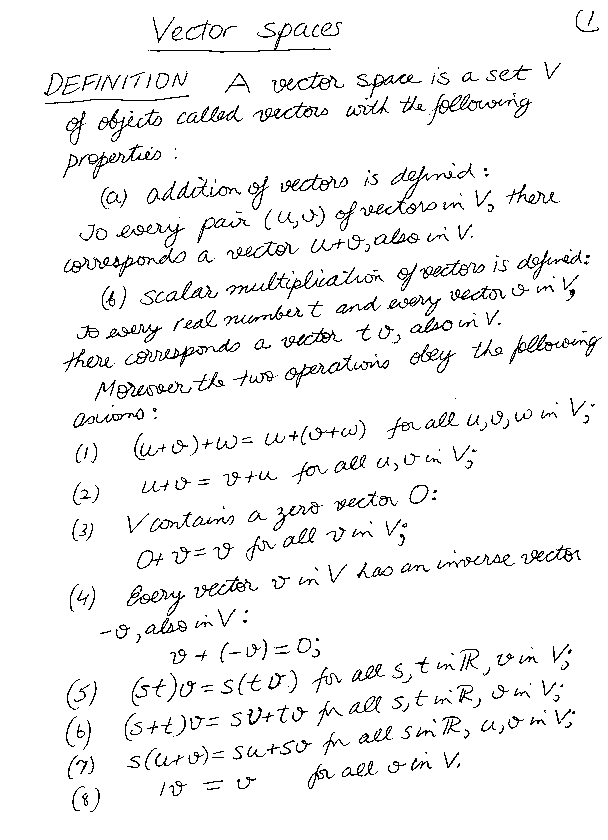 Vector spaces
(1
DEFINITION A vector space is a set V
of objects called vectors with the following
properties:
(a) addition of vectors is defined:
To every pair (u,v) of vectors in V, there
corresponds a vector u+v, also in V.
(b) scalar multiplication of vectors is defined:
To every real number t and every vector v in V,
there corresponds a vector tv, also in V.
Moreover the two operations obey the following
axioms:
(1) (u+v)+w = u+(v+w) for all u, v, w in V;
(2) u+v = v+u for all u, v in V;
(3) V contains a zero vector O:
O+v = v for all v in V;
(4) Every vector v in V has an inverse vector
-v, also in V:
v + (-v) = O;
(5) (st)v = s(tv) for all s, t in ℝ, v in V;
(6) (s+t)v = sv+tv for all s, t in ℝ, v in V;
(7) s(u+v) = su+sv for all s in ℝ, u, v in V;
(8) 1v = v for all v in V.